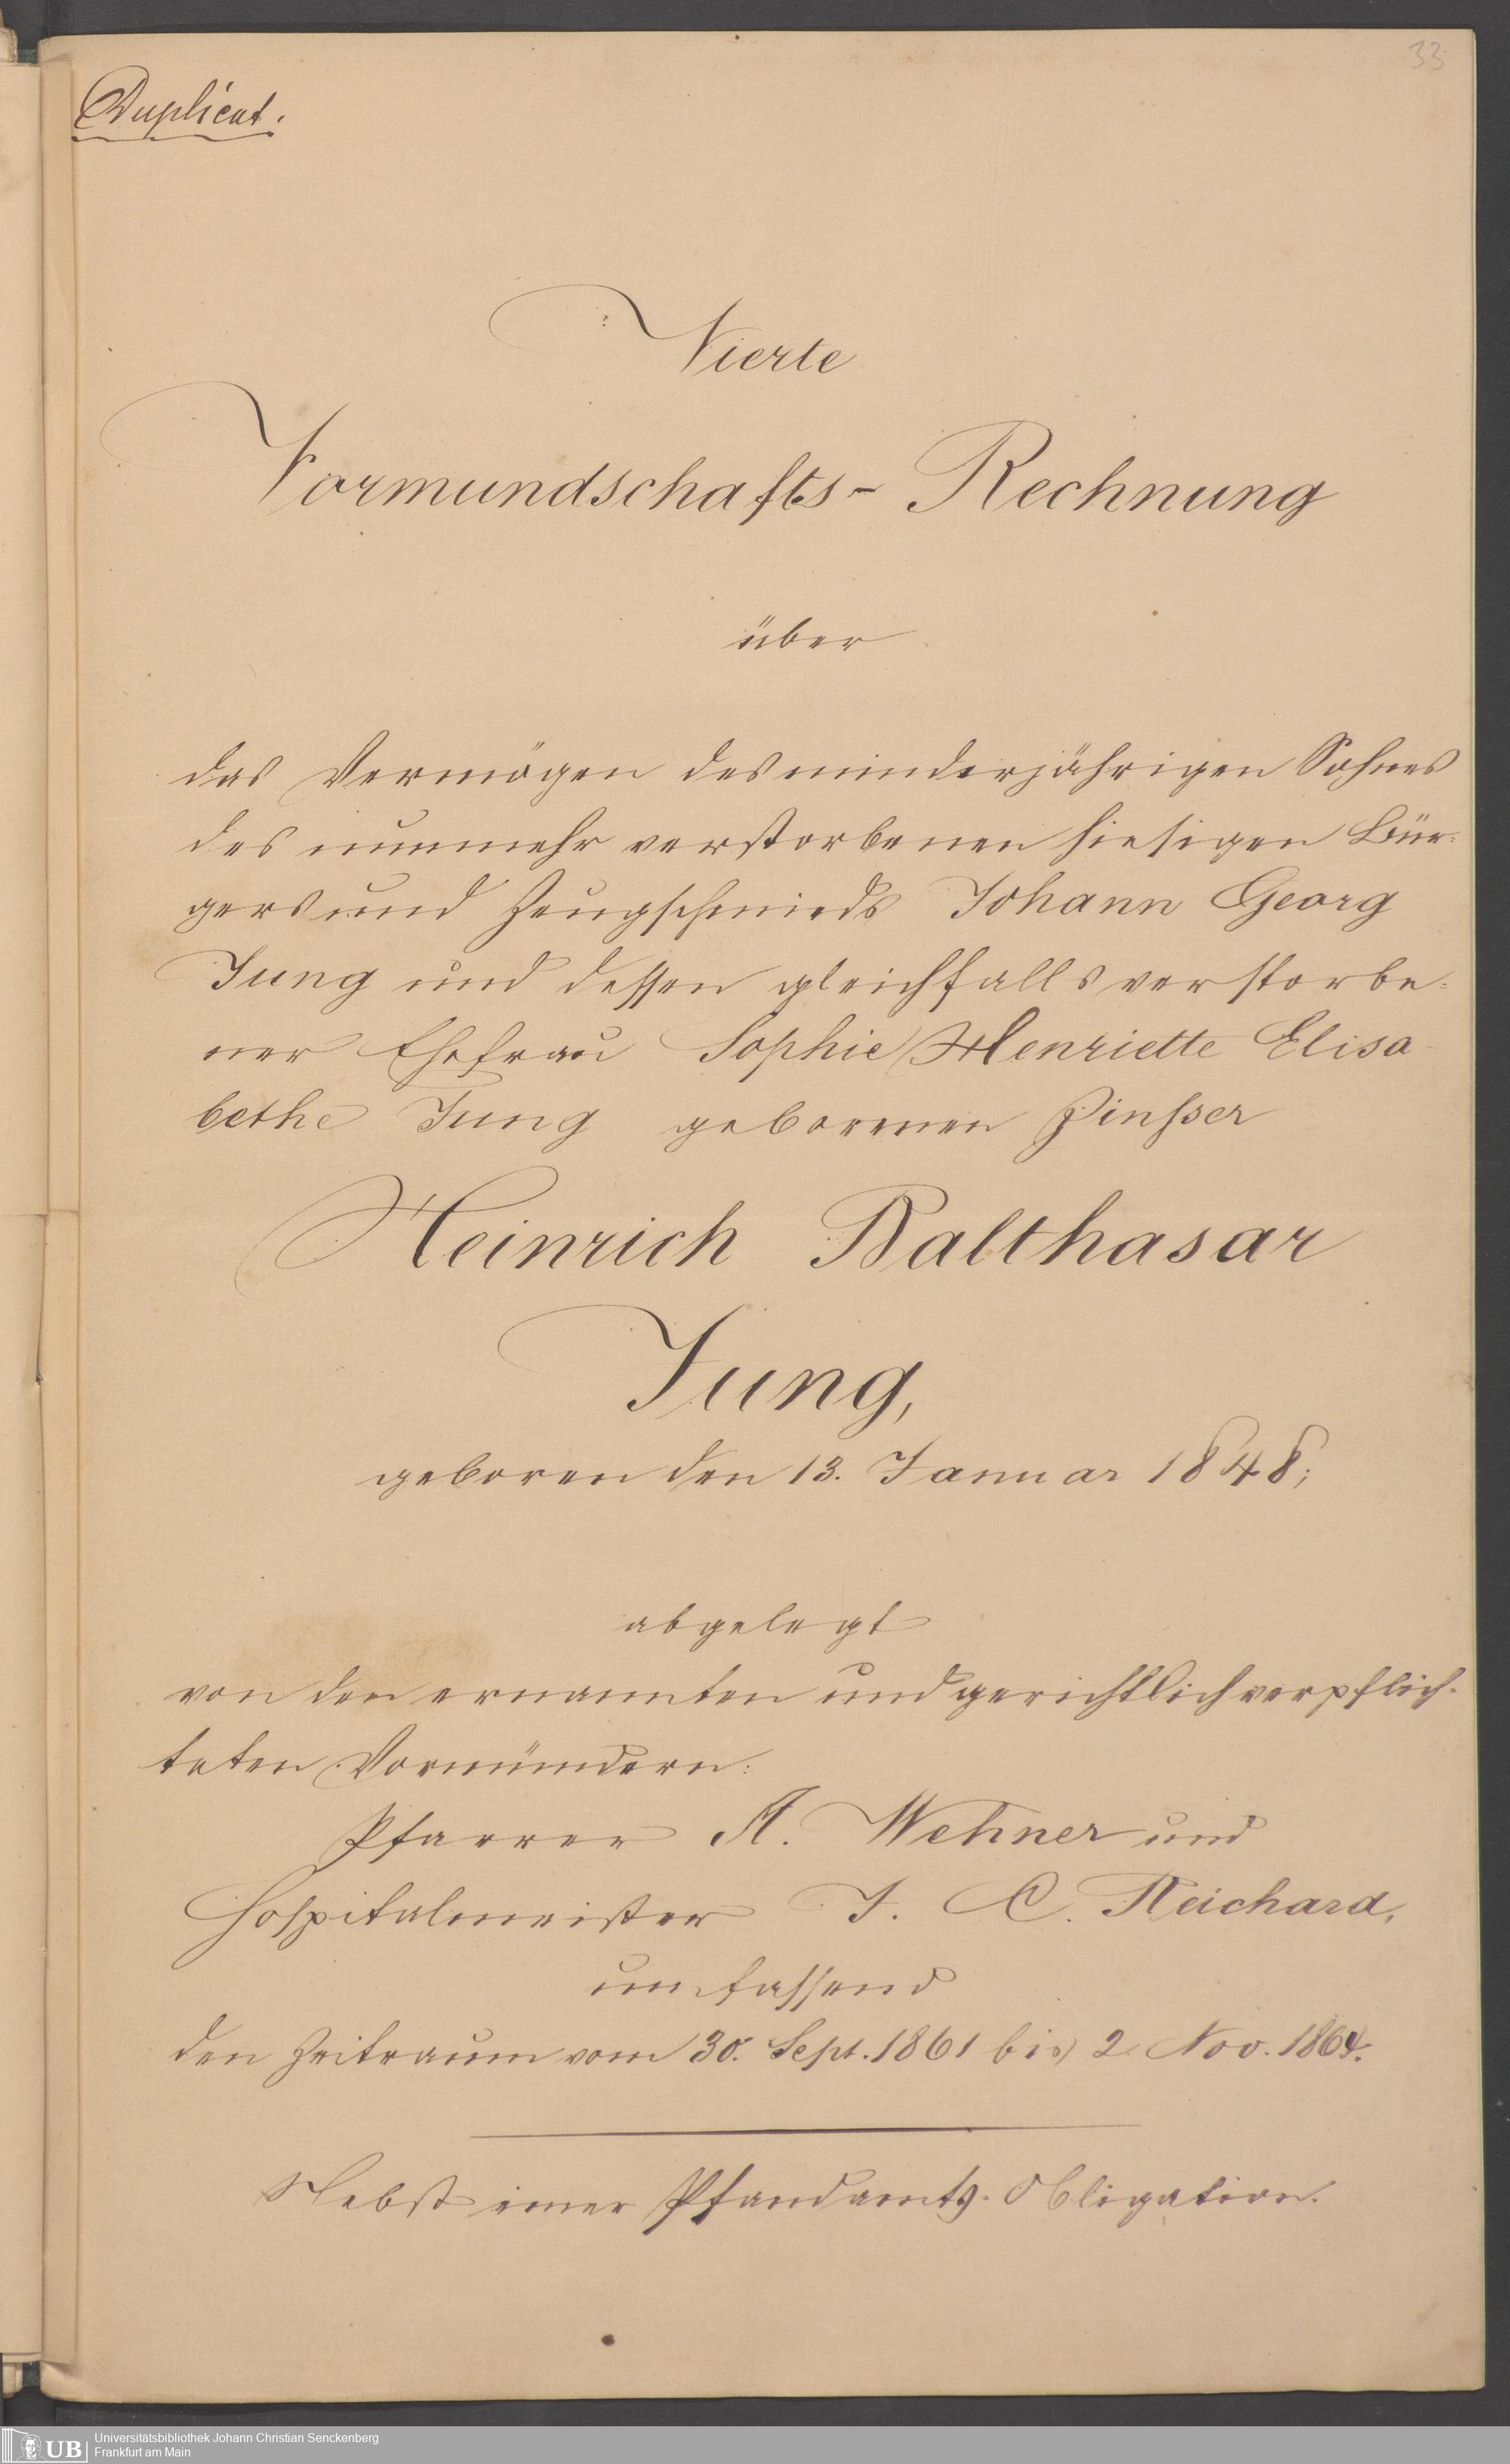 33
Duplicat.
Vierte
Vormundschafts- Rechnung
über
das Vermögen des minderjährigen Sohnes
des nunmehr verstorbenen hiesigen Bür-
gers und Zeugschmieds Johann Georg
Jung und dessen gleichfalls verstorbe-
ner Ehefrau Sophie Henriette Elisa-
bethe Jung geborenen Zinsser
Heinrich Balthasar
Jung,
geboren den 13. Januar 1848;
abgelegt
von den ernannten und gerichtlich verpflich-
teten Vormündern:
Pfarrer A. Wehner und
Hospitalmeister J. C. Reichard,
umfassend
den Zeitraum vom 30. Sept. 1861 bis 2. Nov. 1864.
Nebst einer Pfandamts-Obligation.
UB
Universitätsbibliothek Johann Christian Senckenberg
Frankfurt am Main